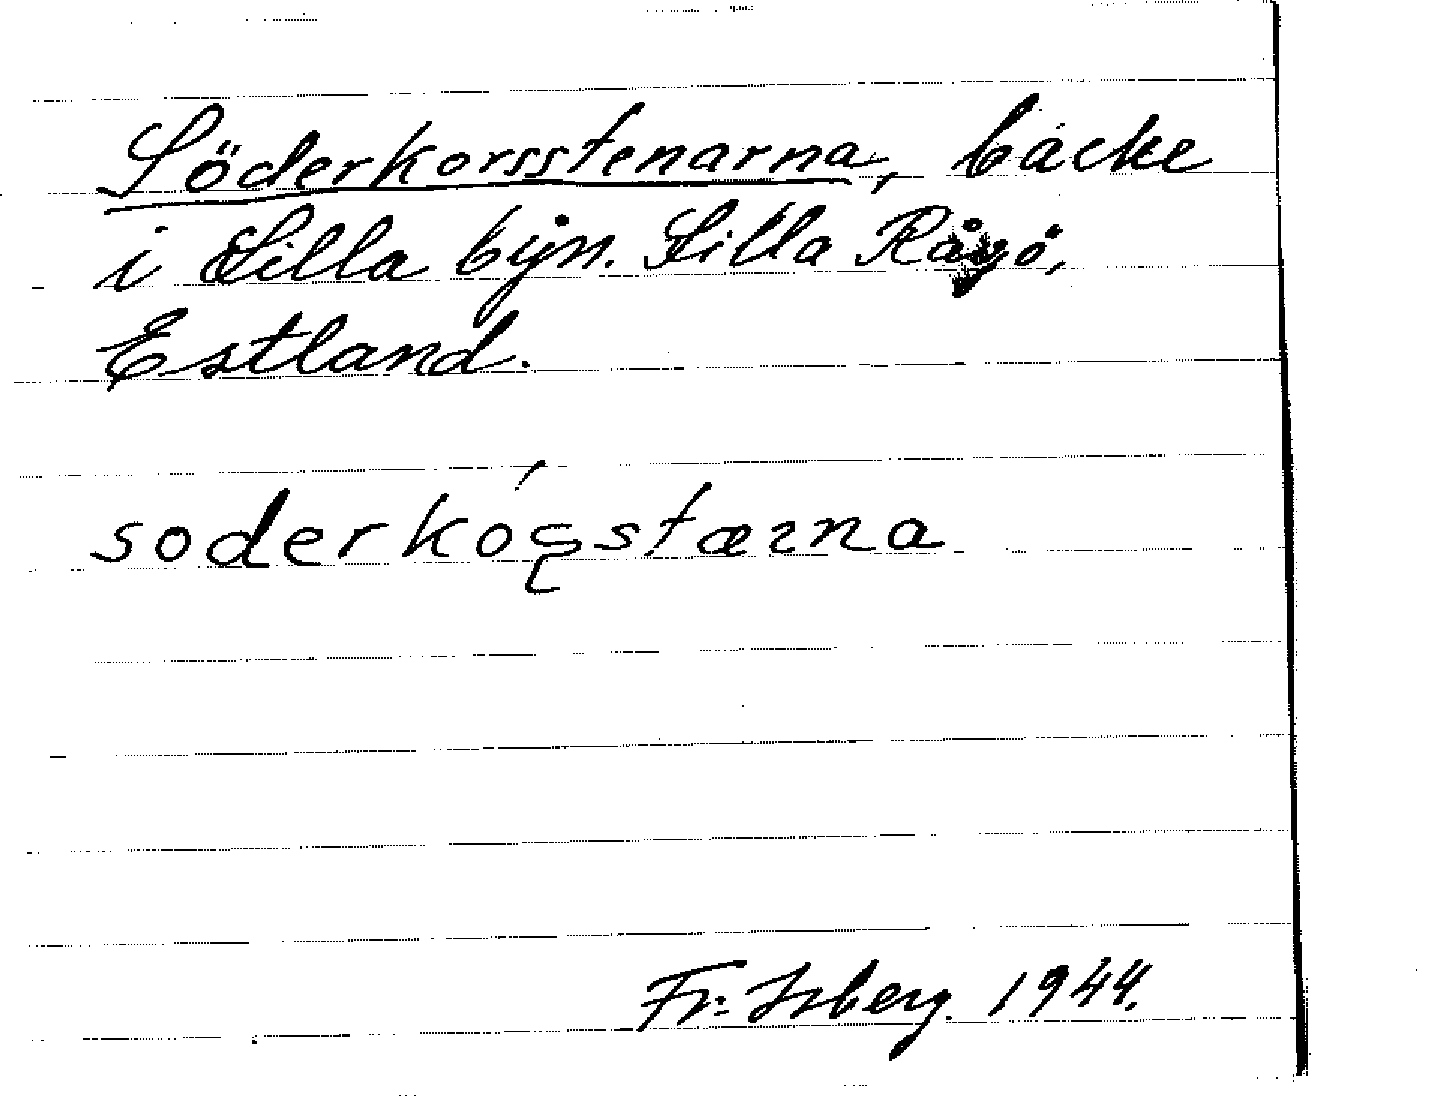 Söderkorsstenarna, backe
i Lilla byn. Lilla Rågö,
Estland.
Fr. Isberg. 1944.